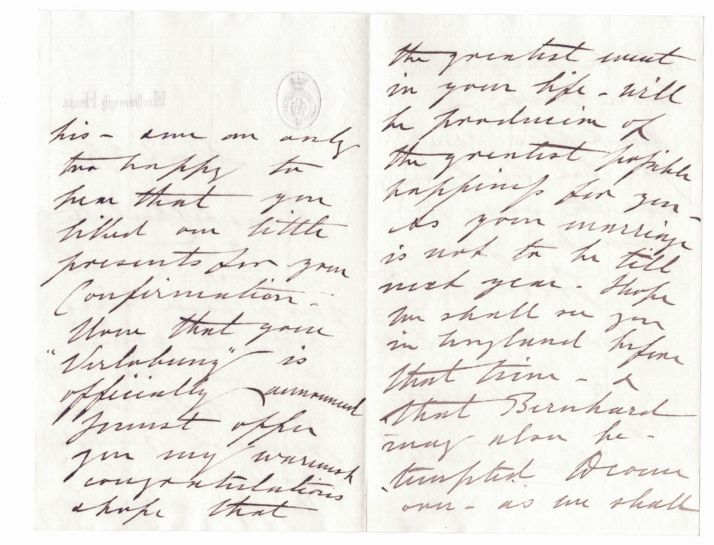 his - and am only
too happy to
hear that you
liked our little
presents for your
Confirmation -
Now that your
"Verlobung" is
officially announced
I must offer
you my warmest
congratulations
& hope that
the greatest event
in your life - will
be producive of
the greatest possible
happiness for you -
As your marriage
is not to be till
next year - I hope
we shall see you
in England before
that time - &
that Bernhard
may also be
tempted to come
over - as we shall